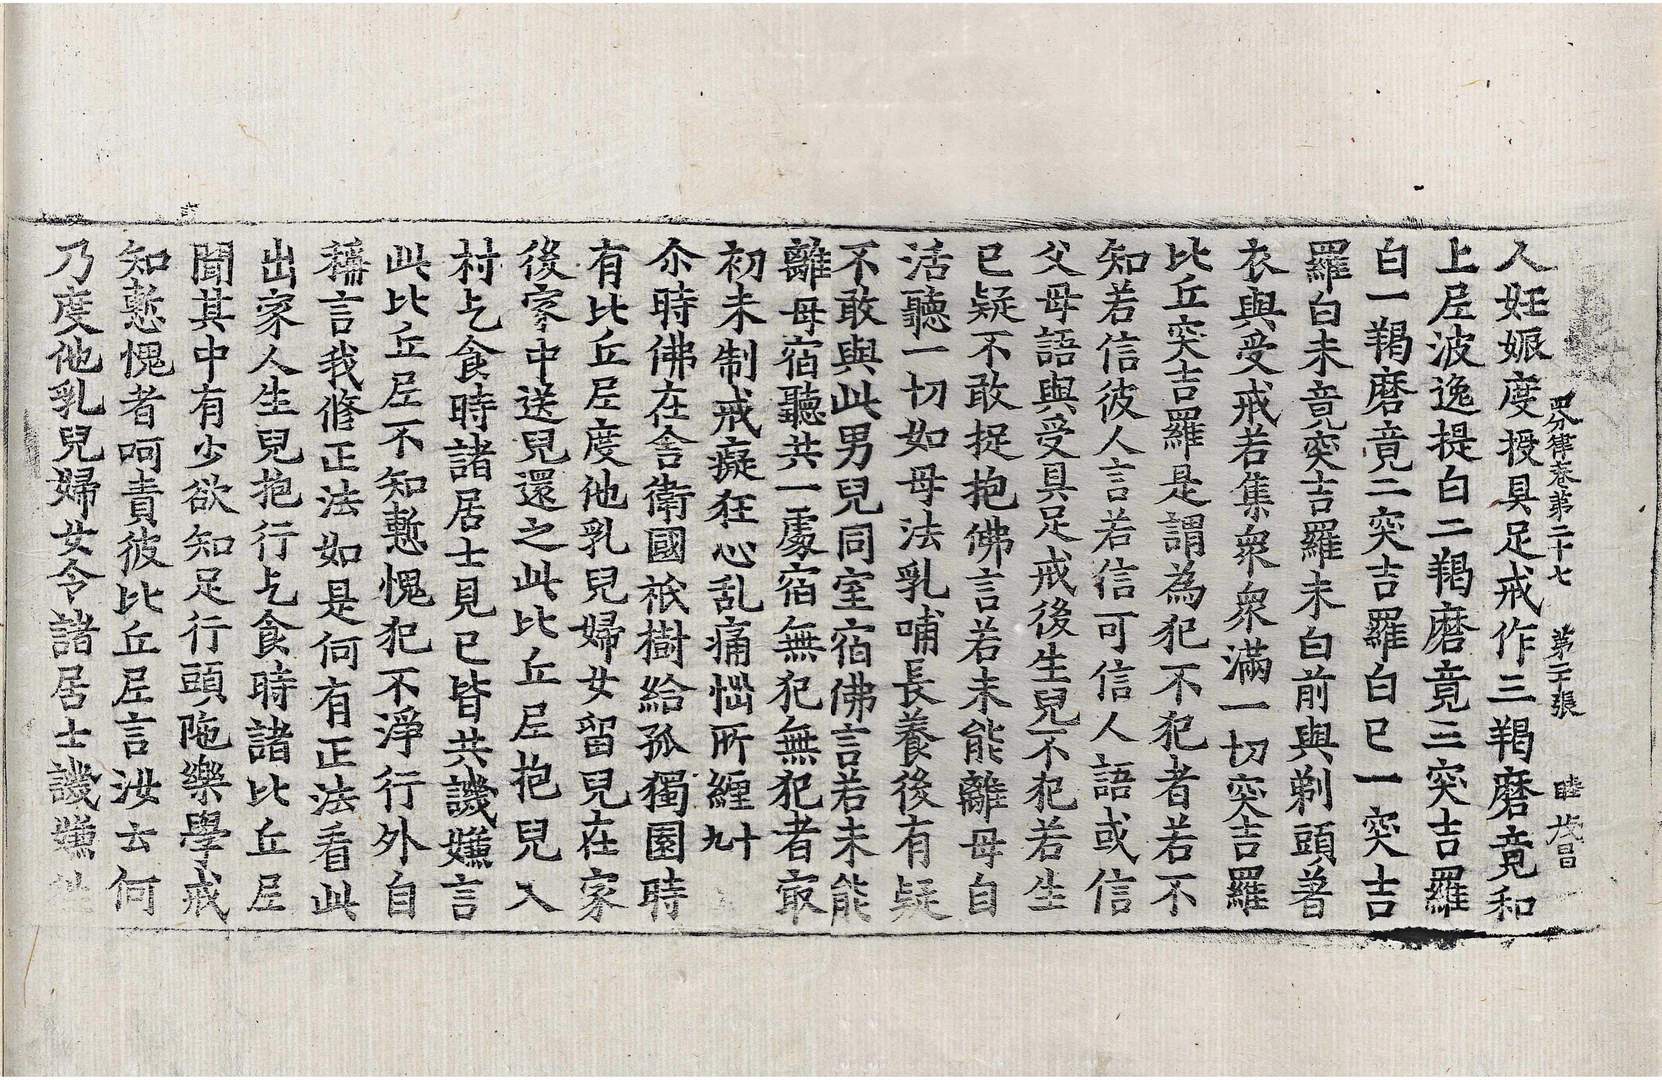 四分律卷第二十七　第二十張　睦　茂昌
人妊娠度授具足戒作三羯磨竟和
上尼波逸提白二羯磨竟三突吉羅
白一羯磨竟二突吉羅白已一突吉
羅白未竟突吉羅未白前與剃頭著
衣與受戒若集衆衆滿一切突吉羅
比丘突吉羅是謂為犯不犯者若不
知若信彼人言若信可信人語或信
父母語與受具足戒後生兒不犯若生
已疑不敢捉抱佛言若未能離母自
活聽一切如母法乳哺長養後有疑
不敢與此男兒同室宿佛言若未能
離母宿聽共一處宿無犯無犯者㝡
初未制戒癡狂心乱痛惱所纏十九
尒時佛在舎衛國祇樹給孤獨園時
有比丘尼度他乳兒婦女留兒在家
後家中送兒還之此比丘尼抱兒入
村乞食時諸居士見已皆共譏嫌言
此比丘尼不知慙愧犯不淨行外自
稱言我修正法如是何有正法看此
出家人生兒抱行乞食時諸比丘尼
聞其中有少欲知足行頭陁樂學戒
知慙愧者呵責彼比丘尼言汝云何
乃度他乳兒婦女令諸居士譏嫌